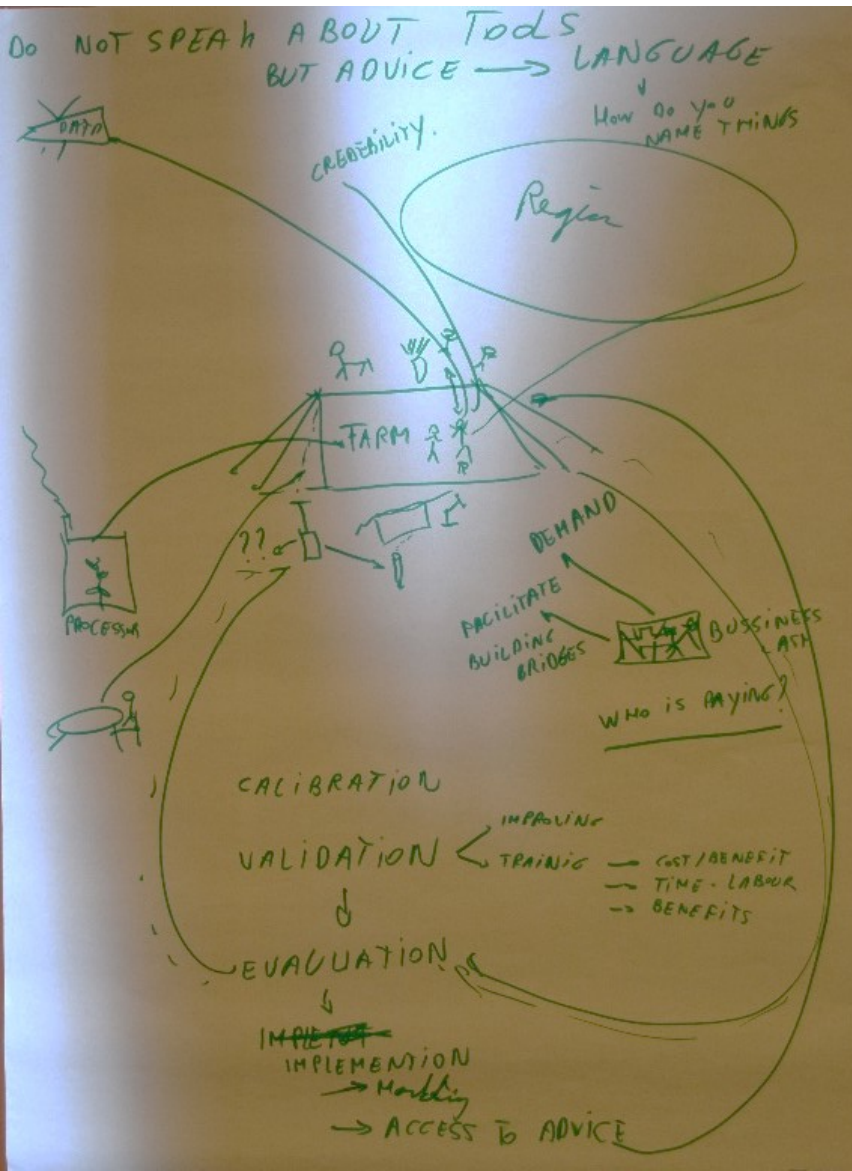 DO NOT SPEAK ABOUT TOOLS
BUT ADVICE → LANGUAGE
HOW DO YOU
NAME THINGS
DATA
CREBEBILITY.
Region
FARM
??
PROCESSOR
DEMAND
FACILITATE
BUILDING
BRIDGES
BUSSINESS
WHO IS PAYING?
CALIBRATION
VALIDATION
IMPROVING
TRAINIG — COST/BENEFIT
→ TIME - LABOUR
→ BENEFITS
EVALUUATION
IMPLEMENTION
→ ACCESS TO ADVICE